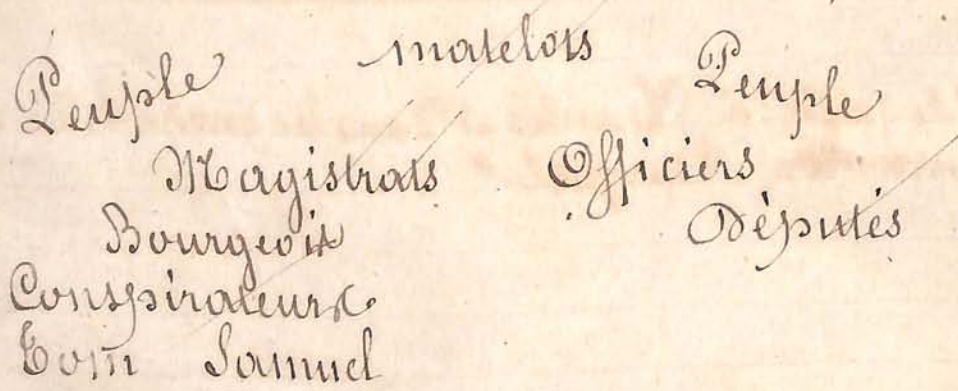 Peuple matelots Peuple
Magistrats Officiers
Bourgeois Députés
Conspirateurs
Tom Samuel